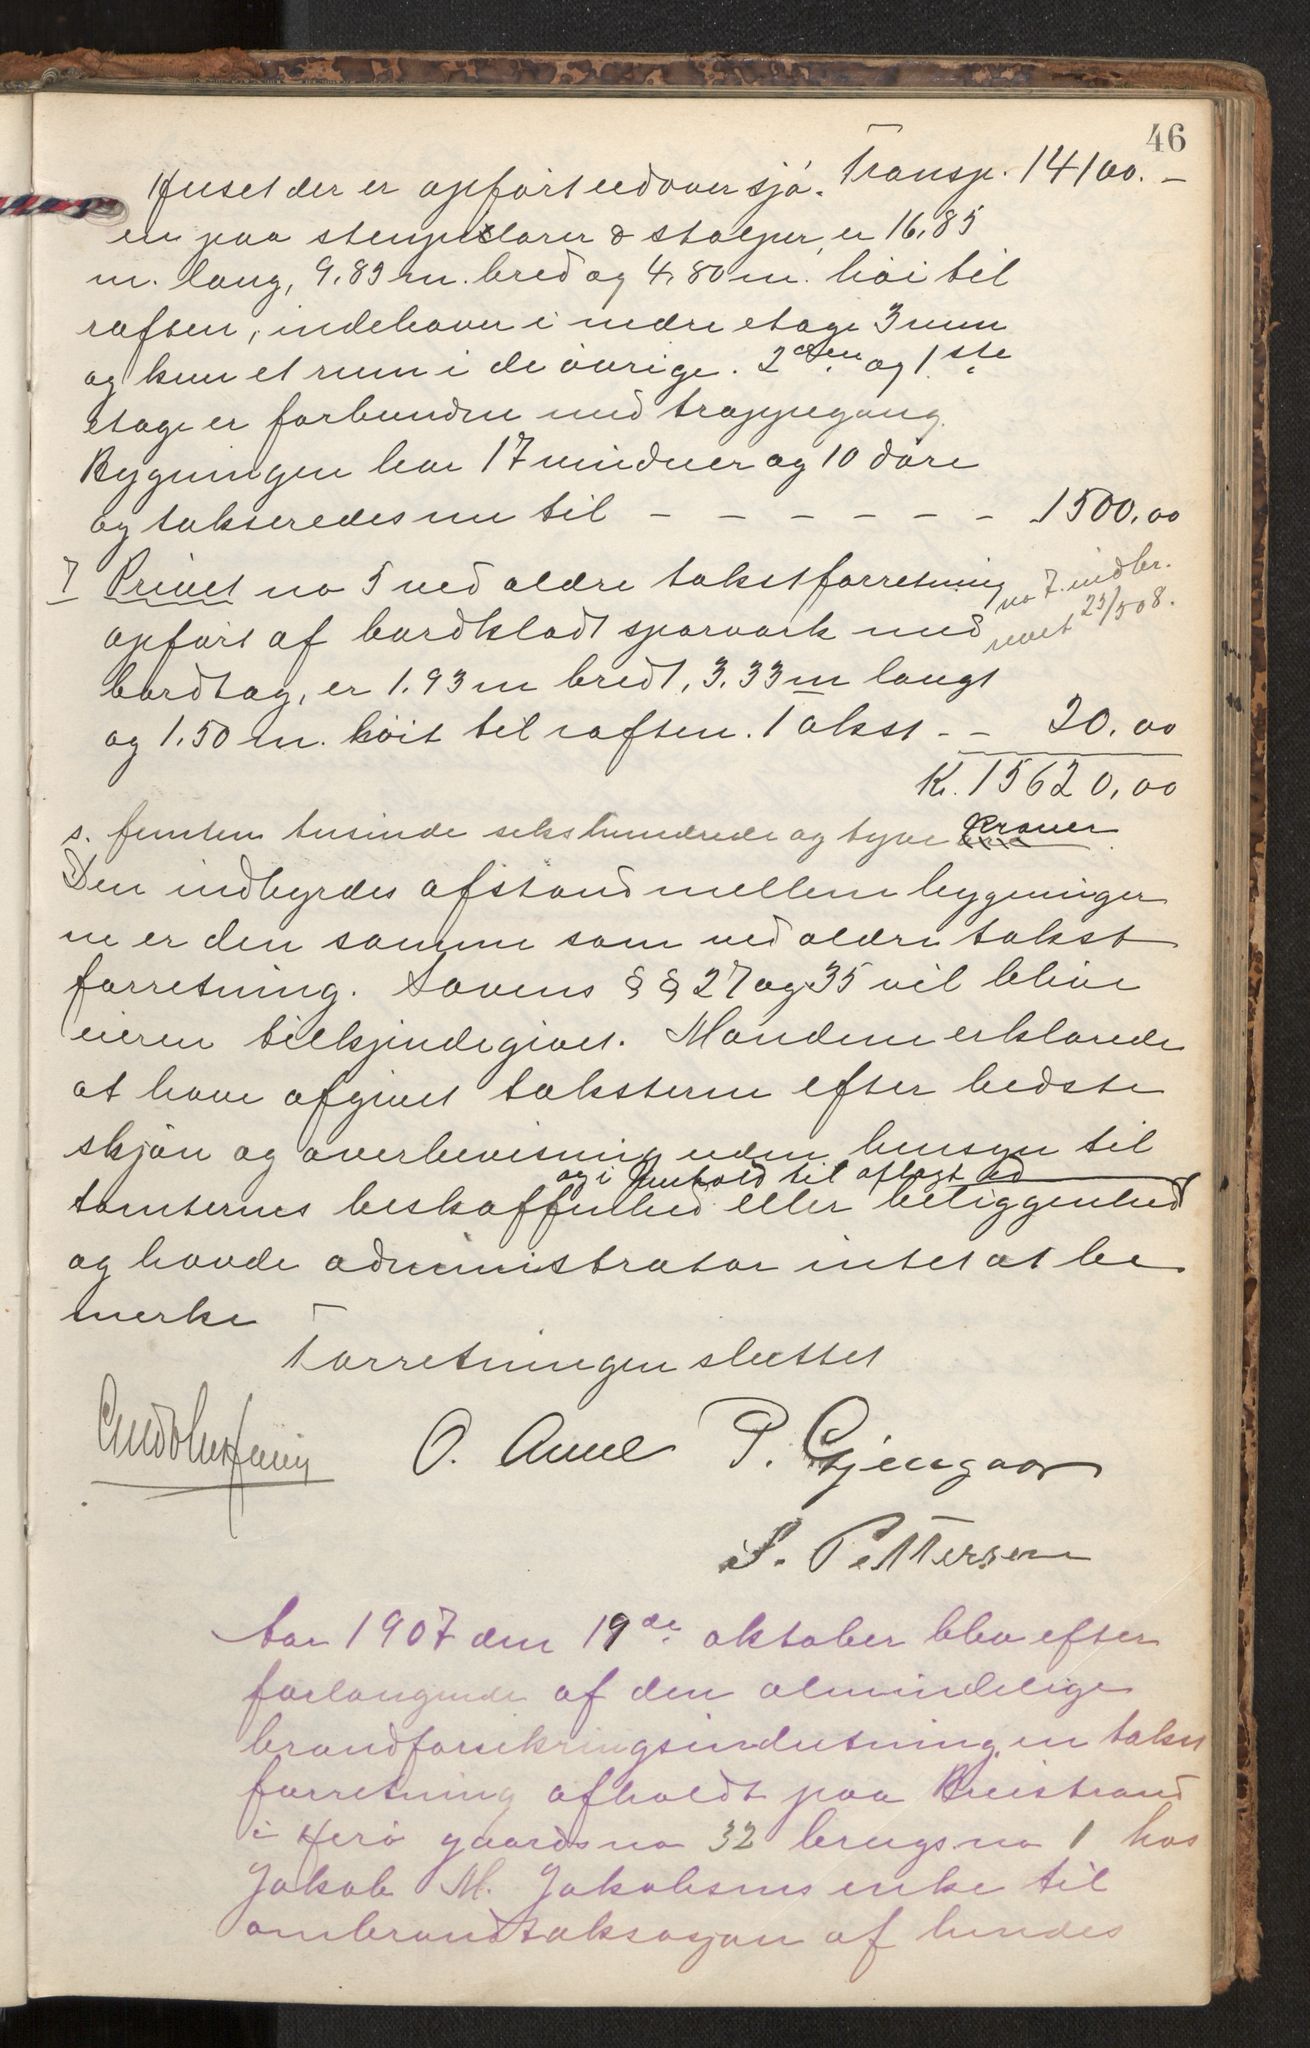 46
Transp. 14100.–
Huset der er opført udover sjø-
en paa stenpelarer & stolper, er 16,85
m. lang, 9,83 m. bred og 4,80 m. høi til
raften, indehaver i nedre etage 3 rum
og kun et rum i de øvrige. 2den og 1ste
etage er forbunden med trappegang.
Bygningen har 17 vinduer og 10 døre
og takseredes nu til – – – – – – – 1500,00
7 Privet no 5 ved ældre takstforretning
no 7. indbe.
revet 25/5 08.
opført af bordklædt sparværk med
bordtag, er 1.93 m bredt, 3.33 m langt
og 1.50 m. høit til raften. Takst – – 20,00
Kr. 15620,00
s. femten tusinde sekshundrede og tyve Kroner
Den indbyrdes afstand mellem bygninger
ne er den samme som ved ældre takst
forretning. Lovens § § 27 og 35 vil blive
eieren tilkjendegivet. Mændene erklærede
at have afgivet taksterne efter bedste
skjøn og overbevisning uden hensyn til
og i Henhold til aflagt ed
tomternes beskaffenhed eller beliggenhed
og havde administrator intet at be
merke
Forretningen sluttet
O. Aune P. Gjengaar
S. Pettersen
Aar 1907 den 19de oktober blev efter
forlangende af den almindelige
brandforsikringsindretning en takst
forretning afholdt paa Breistrand
i Herø gaardsno 32 brugsno 1 hos
Jakob M. Jakobsens enke til
ombrandtaksasjon af hendes